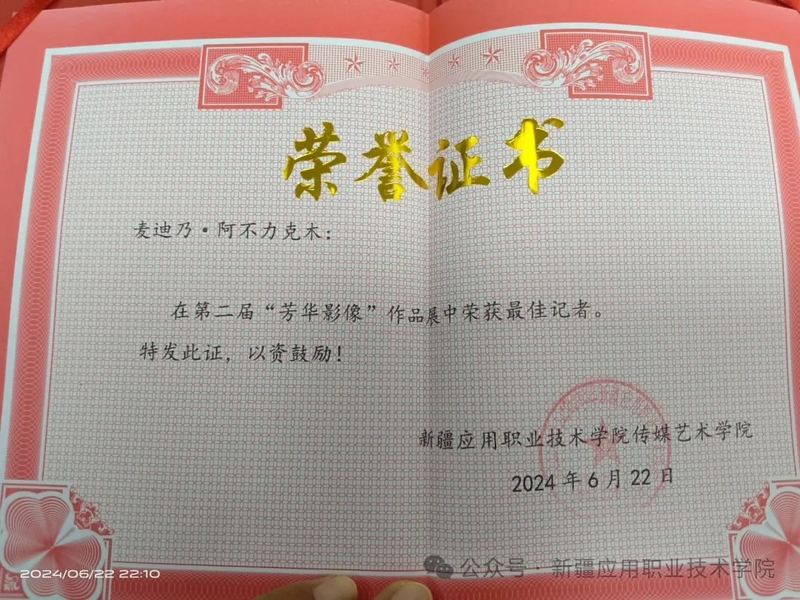 荣誉证书
麦迪乃·阿不力克木：
在第二届“芳华影像”作品展中荣获最佳记者。
特发此证，以资鼓励！
新疆应用职业技术学院传媒艺术学院
2024年6月22日
2024/06/22 22:10
公众号·新疆应用职业技术学院